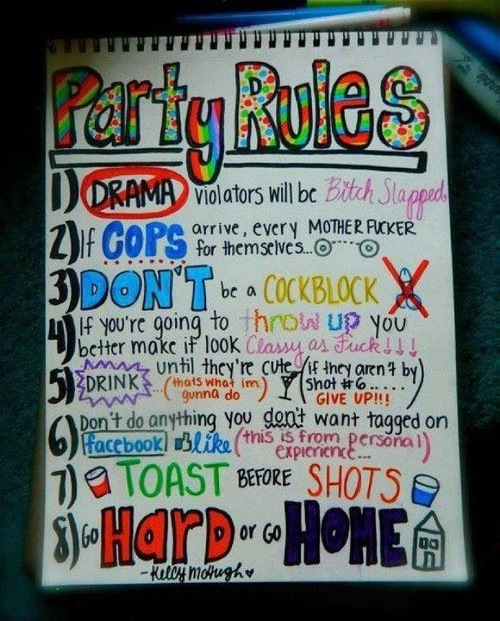 Party Rules
1) DRAMA violators will be Bitch Slapped
2) If COPS arrive, every MOTHER FUCKER
for themselves...
3) DON'T be a COCKBLOCK
4) If you're going to throw up you
better make it look Classy as Fuck!!!
5) DRINK until they're cute (if they aren't by
...(thats what im gunna do) shot #6..... GIVE UP!!!)
6) Don't do anything you don't want tagged on
facebook like (this is from personal)
expierence...
7) TOAST BEFORE SHOTS
8) GO HARD or GO HOME
-Kelly McHugh